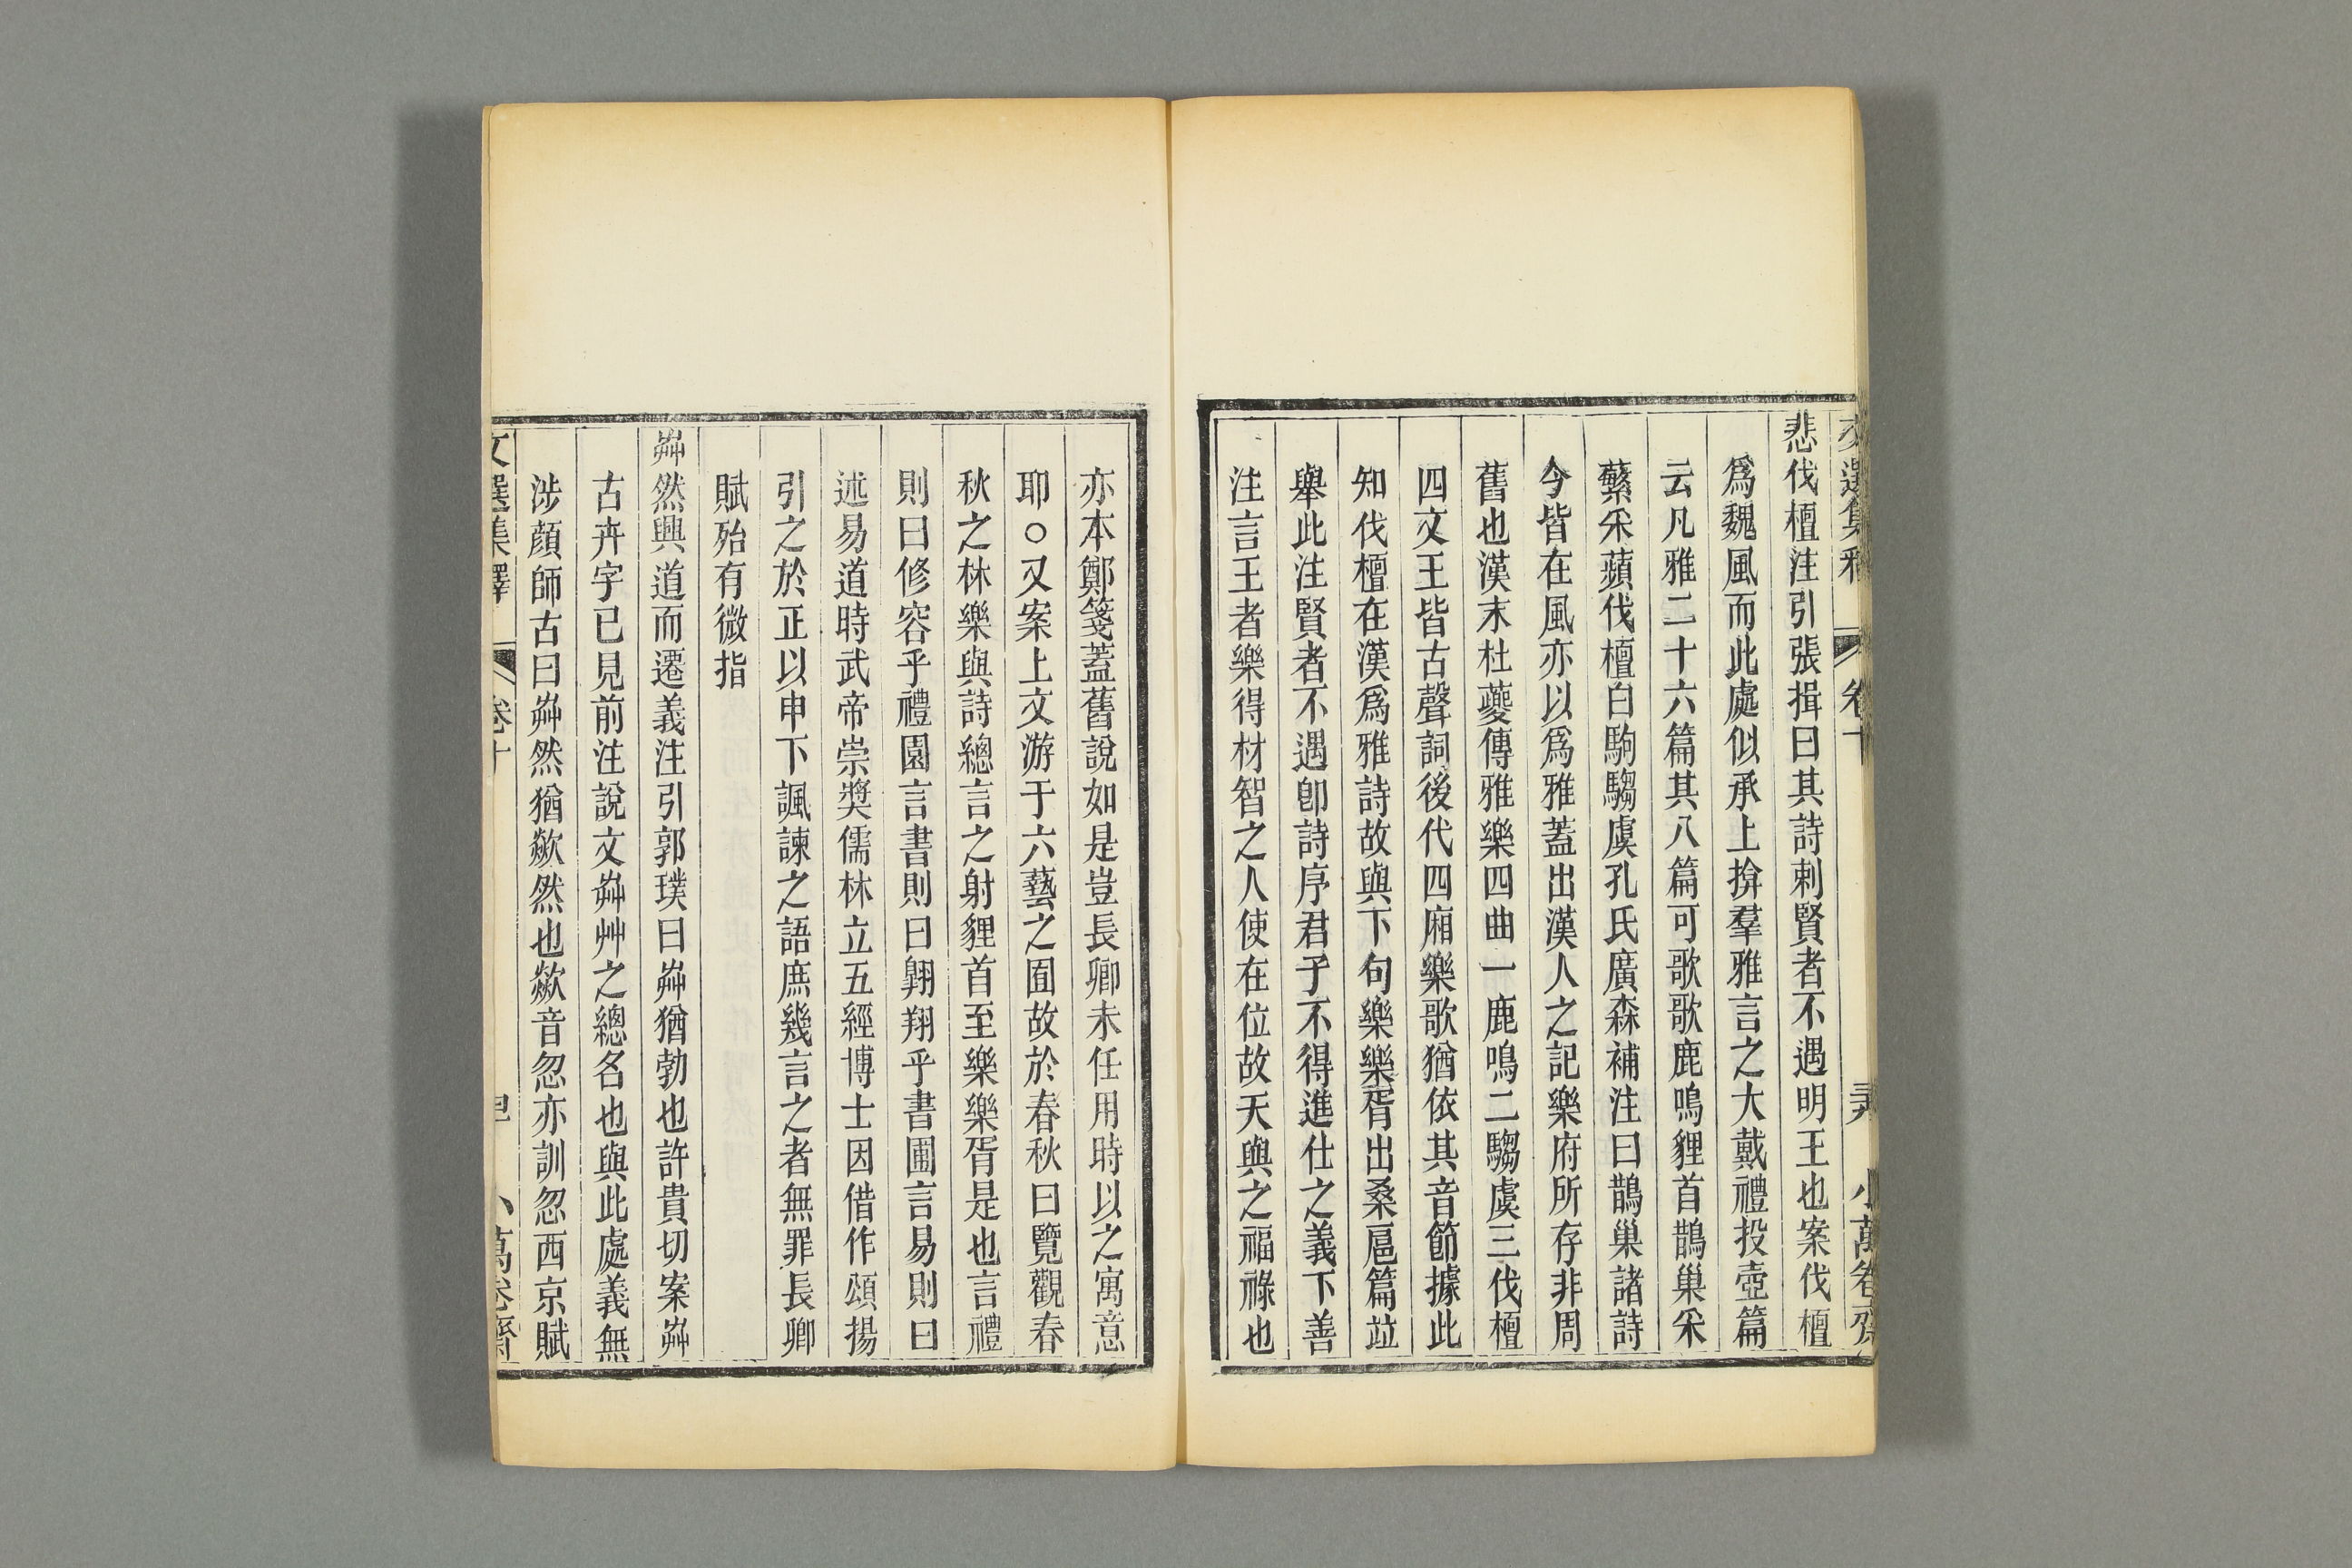 悲伐檀注引張揖曰其詩刺賢者不遇明王也案伐檀
爲魏風而此處似承上揜羣雅言之大戴禮投壺篇
云凡雅二十六篇其八篇可歌歌鹿鳴貍首鵲巢采
蘩采蘋伐檀白駒騶虞孔氏廣森補注曰鵲巢諸詩
今皆在風亦以爲雅蓋出漢人之記樂府所存非周
舊也漢末杜夔傳雅樂四曲一鹿鳴二騶虞三伐檀
四文王皆古聲詞後代四廂樂歌猶依其音節據此
知伐檀在漢爲雅詩故與下句樂樂胥出桑扈篇竝
舉此注賢者不遇卽詩序君子不得進仕之義下善
注言王者樂得材智之人使在位故天與之福祿也
亦本鄭箋蓋舊說如是豈長卿未任用時以之寓意
耶○又案上文游于六藝之囿故於春秋曰覽觀春
秋之林樂與詩總言之射貍首至樂樂胥是也言禮
則曰修容乎禮園言書則曰翺翔乎書圃言易則曰
述易道時武帝崇奬儒林立五經博士因借作頌揚
引之於正以申下諷諫之語庶幾言之者無罪長卿
賦殆有微指
芔然興道而遷義注引郭璞曰芔猶勃也許貴切案芔
古卉字已見前注說文芔艸之總名也與此處義無
涉顔師古曰芔然猶歘然也歘音忽亦訓忽西京賦
文選集釋
卷十
小萬卷齋